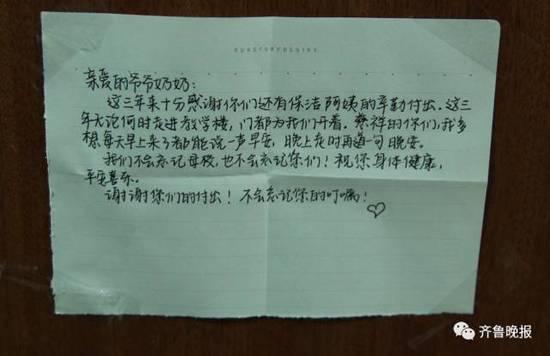 亲爱的爷爷奶奶：
这三年来十分感谢你们还有保洁阿姨的辛勤付出。这三
年无论何时走进教学楼，门都为我们开着。慈祥的你们，我多
想每天早上来了都能说一声早安，晚上走时再道一句晚安。
我们不会忘记母校，也不会忘记你们！祝您身体健康，
平安喜乐。
谢谢您们的付出！不会忘记您的叮嘱！
齐鲁晚报